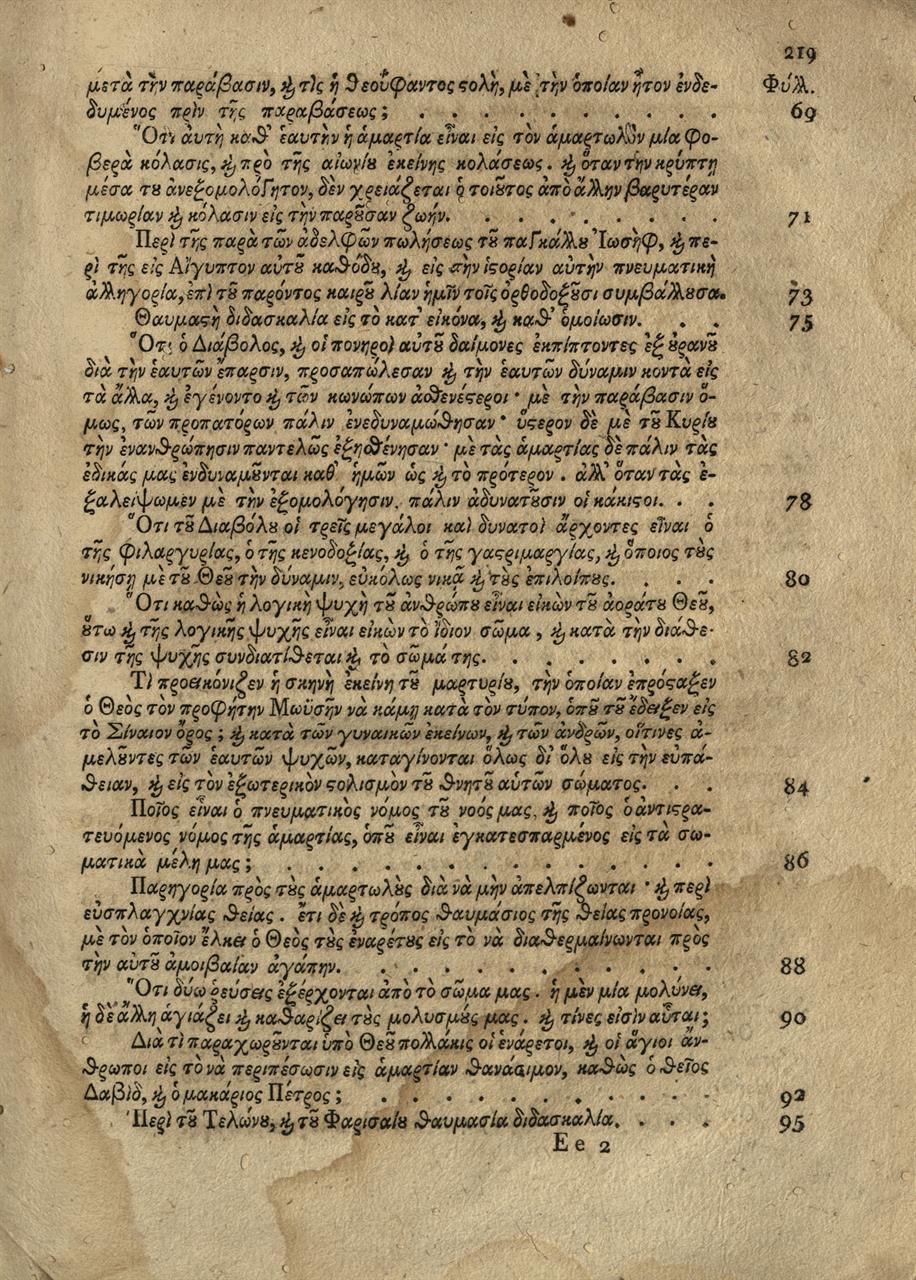 219
μετὰ τὴν παράβασιν, ϗ τὶς ἡ θεοΰφαντος ϛολὴ, μὲ τὴν ὁποίαν ἦτον ἐνδε- Φύλλ.
δυμένος πρὶν τῆς παραβάσεως; . . . . . . . . . . 69
Ὅτι αὐτὴ καθ' ἑαυτὴν ἡ ἁμαρτία εἶναι εἰς τὸν ἁμαρτωλὸν μία φο-
βερὰ κόλασις, ϗ πρὸ τῆς αἰωνίȣ ἐκείνης κολάσεως. ϗ ὅταν τὴν κρύπτῃ
μέσα τȣ ἀνεξομολόγητον, δὲν χρειάζεται ὁ τοιȣ͂τος ἀπὸ ἄλλην βαρυτέραν
τιμωρίαν ϗ κόλασιν εἰς τὴν παρȣ͂σαν ζωήν. . . . . . . . . 71
Περὶ τῆς παρὰ τῶν ἀδελφῶν πωλήσεως τȣ͂ παγκάλλȣ Ἰωσὴφ, ϗ πε-
ρὶ τῆς εἰς Αἴγυπτον αὐτȣ͂ καθόδȣ, ϗ εἰς τὴν ἱϛορίαν αὐτὴν πνευματικὴ
ἀλληγορία, ἐπὶ τȣ͂ παρόντος καιρȣ͂ λίαν ἡμῖν τοῖς ὀρθοδοξȣ͂σι συμβάλλȣσα. 73
Θαυμαϛὴ διδασκαλία εἰς τὸ κατ' εἰκόνα, ϗ καθ' ὁμοίωσιν. . . 75
Ὅτι ὁ Διάβολος, ϗ οἱ πονηροὶ αὐτȣ͂ δαίμονες ἐκπίπτοντες ἐξ ȣ̓ρανȣ͂
διὰ τὴν ἑαυτῶν ἔπαρσιν, προσαπώλεσαν ϗ τὴν ἑαυτῶν δύναμιν κοντὰ εἰς
τὰ ἄλλα, ϗ ἐγένοντο ϗ τῶν κωνώπων ἀσθενέϛεροι· μὲ τὴν παράβασιν ὅ-
μως, τῶν προπατόρων πάλιν ἐνεδυναμώθησαν· ὕϛερον δὲ μὲ τȣ͂ Κυρίȣ
τὴν ἐνανθρώπησιν παντελῶς ἐξησθένησαν· μὲ τὰς ἁμαρτίας δὲ πάλιν τὰς
ἐδικάς μας ἐνδυναμȣ͂νται καθ' ἡμῶν ὡς ϗ τὸ πρότερον. ἀλλ' ὅταν τὰς ἐ-
ξαλείψωμεν μὲ τὴν ἐξομολόγησιν, πάλιν ἀδυνατȣ͂σιν οἱ κάκιϛοι. . . 78
Ὅτι τȣ͂ Διαβόλȣ οἱ τρεῖς μεγάλοι καὶ δυνατοὶ ἄρχοντες εἶναι ὁ
τῆς φιλαργυρίας, ὁ τῆς κενοδοξίας, ϗ ὁ τῆς γαϛριμαργίας, ϗ ὅποιος τȣ̀ς
νικήσῃ μὲ τȣ͂ Θεȣ͂ τὴν δύναμιν, εὐκόλως νικᾷ ϗ τȣ̀ς ἐπιλοίπȣς. . . . 80
Ὅτι καθὼς ἡ λογικὴ ψυχὴ τȣ͂ ἀνθρώπȣ εἶναι εἰκὼν τȣ͂ ἀοράτȣ Θεȣ͂,
ȣ̔́τω ϗ τῆς λογικῆς ψυχῆς εἶναι εἰκὼν τὸ ἴδιον σῶμα, ϗ κατὰ τὴν διάθε-
σιν τῆς ψυχῆς συνδιατίθεται ϗ τὸ σῶμά της. . . . . . . . 82
Τί προεικόνιζεν ἡ σκηνὴ ἐκείνη τȣ͂ μαρτυρίȣ, τὴν ὁποίαν ἐπρόσαξεν
ὁ Θεὸς τὸν προφήτην Μωϋσῆν νὰ κάμῃ κατὰ τὸν τύπον, ὁπȣ͂ τȣ͂ ἔδειξεν εἰς
τὸ Σίναιον ὄρος; ϗ κατὰ τῶν γυναικῶν ἐκείνων, ϗ τῶν ἀνδρῶν, οἵτινες ἀ-
μελȣ͂ντες τῶν ἑαυτῶν ψυχῶν, καταγίνονται ὅλως δι' ὅλȣ εἰς τὴν εὐπά-
θειαν, ϗ εἰς τὸν ἐξωτερικὸν ϛολισμὸν τȣ͂ θνητȣ͂ αὑτῶν σώματος. . . 84
Ποῖος εἶναι ὁ πνευματικὸς νόμος τȣ͂ νοός μας, ϗ ποῖος ὁ ἀντιϛρα-
τευόμενος νόμος τῆς ἁμαρτίας, ὁπȣ͂ εἶναι ἐγκατεσπαρμένος εἰς τὰ σω-
ματικὰ μέλη μας; . . . . . . . . . . . . . 86
Παρηγορία πρὸς τȣ̀ς ἁμαρτωλȣ̀ς διὰ νὰ μὴν ἀπελπίζωνται· ϗ περὶ
εὐσπλαγχνίας θείας. ἔτι δὲ ϗ τρόπος θαυμάσιος τῆς θείας προνοίας,
μὲ τὸν ὁποῖον ἕλκει ὁ Θεὸς τȣ̀ς ἐναρέτȣς εἰς τὸ νὰ διαθερμαίνωνται πρὸς
τὴν αὐτȣ͂ ἀμοιβαίαν ἀγάπην. . . . . . . . . . . 88
Ὅτι δύω ῥεύσεις ἐξέρχονται ἀπὸ τὸ σῶμα μας. ἡ μὲν μία μολύνει,
ἡ δὲ ἄλλη ἁγιάζει ϗ καθαρίζει τȣς μολυσμȣ́ς μας. ϗ τίνες εἰσὶν αὗται; 90
Διὰ τί παραχωρȣ͂νται ὑπὸ Θεȣ͂ πολλάκις οἱ ἐνάρετοι, ϗ οἱ ἅγιοι ἄν-
θρωποι εἰς τὸ νὰ περιπέσωσιν εἰς ἁμαρτίαν θανάσιμον, καθὼς ὁ θεῖος
Δαβὶδ, ϗ ὁ μακάριος Πέτρος; . . . . . . . . . . 92
Περὶ τȣ͂ Τελώνȣ, ϗ τȣ͂ Φαρισαίȣ θαυμασία διδασκαλία. . . . 95
Ee 2